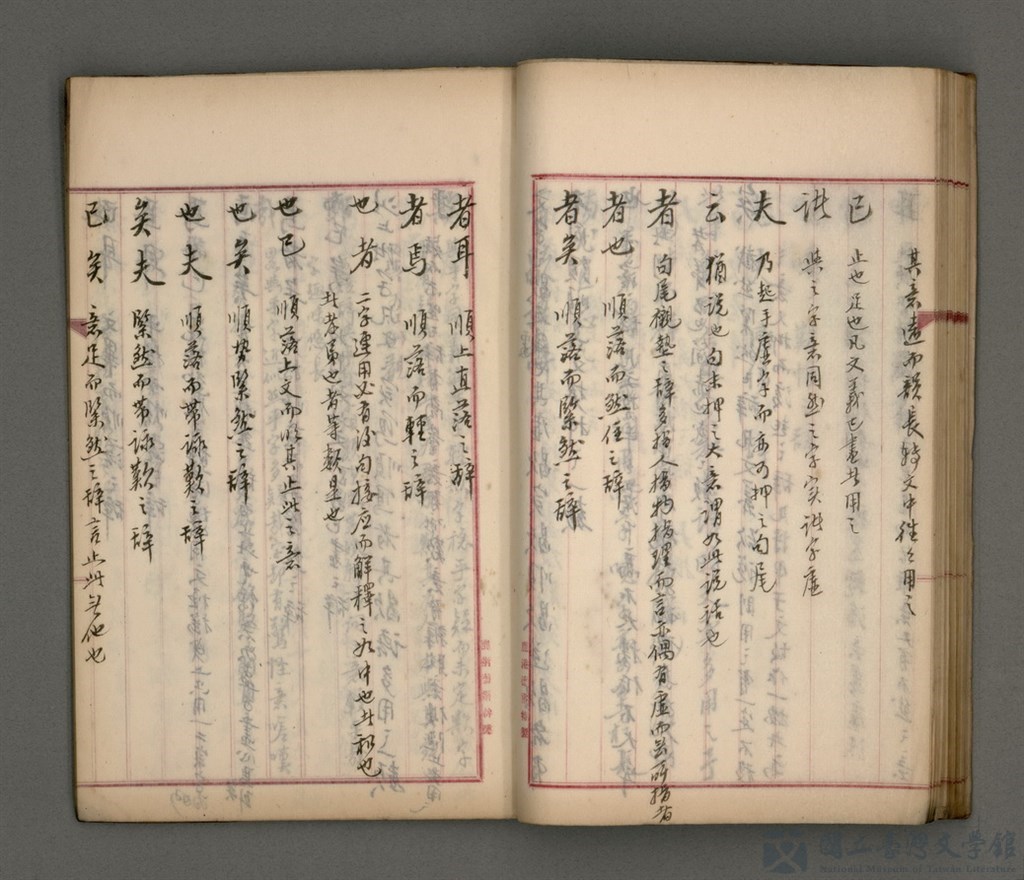 其意遠而韻長特文中往々用之
已 止也足也凡文義已盡皆用之
諸 與之字意同然之字實諸字虛
夫 乃起手虛字而亦可押之句尾
云 猶說也句末押之大意謂如此說話也
者 句尾襯墊之辞多指人指物指理而言亦偶有虛而無所指者
者也 順落而然住之辞
者矣 順落而緊然之辞
者耳 順上直落之辞
者焉 順落而輕之辞
也者 二字連用必有後句接应而解釋之如中也者和也
孝弟也者等類是也
也已 順落上文而順其止此之意
也矣 順勢緊然之辞
也夫 順落而帶詠歎之辞
矣夫 緊然而帶詠歎之辞
已矣 意足而緊然之辞言止此無他也
國立臺灣文學館
National Museum of Taiwan Literature